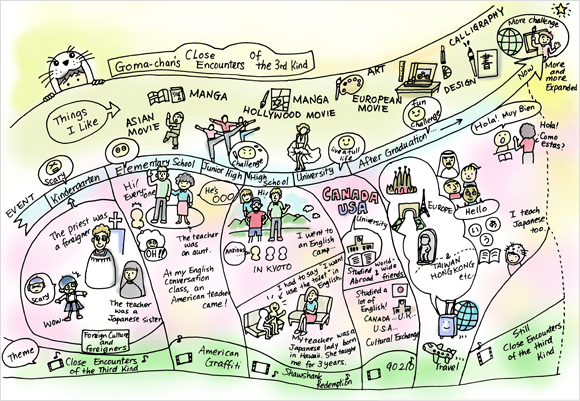 Goma-chan's Close Encounters of the 3rd Kind
CALLIGRAPHY
More challenge
書
NOW
More
and
more
Expanded
ART
DESIGN
MANGA
MANGA
EUROPEAN
MOVIE
HOLLYWOOD MOVIE
ASIAN
MOVIE
Things
I Like
fun
challenge
live a full
life
challenge
scary
EVENT
Kindergarten
Elementary School
Junior High
High
school
University
After Graduation...
Hola! Muy Bien
Hola!
Como
estas?
The priest was
a foreigner
scary
WOW
The teacher
was a
Japanese sister
Foreign Culture
and
foreigners
Hi!
Everyone
He's
OOO
OH!!
The teacher
was
an aunt.
At my English
conversation
class, an
American teacher
came!
Hi!
Anxious
I went to
an English
Camp
IN KYOTO
I had to say "I want
to use the toilet" in
English.
My teacher was a
Japanese lady born
in Hawaii. She taught
me for 3 years.
CANADA
USA
University
Studied
Abroad
World
wide
friends
Studied a
lot of
English!
CANADA...U.K...
U.S.A...
Cultural Exchange
EUROPE
Hello
い
う
あ
&
TAIWAN
HONGKONG
etc
I teach
Japanese
too.
Theme
Close Encounters
of the Third Kind
American
Graffiti
Shawshank
Redemption
90210
Travel
Still
Close Encounters
of the third
Kind